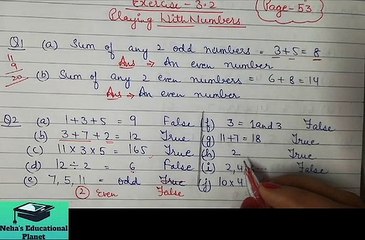 Exercise - 3.2
Playing With Numbers
(Page-53)
Q1 (a) Sum of any 2 odd numbers = 3+5 = 8
Ans → An even number
11
9
20
(b) Sum of any 2 even numbers = 6+8=14
Ans → An even number
Q2 (a) 1+3+5 = 9 False
(b) 3+7+2 = 12 True
(c) 11×3×5 = 165 True
(d) 12÷2 = 6 False
(e) 7, 5, 11 = odd True
2 even False
(f) 3 = 1 and 3 False
(g) 11+7=18 True
(h) 2 True
(i) 2, False
(j) 10×4 True
Neha's Educational
Planet